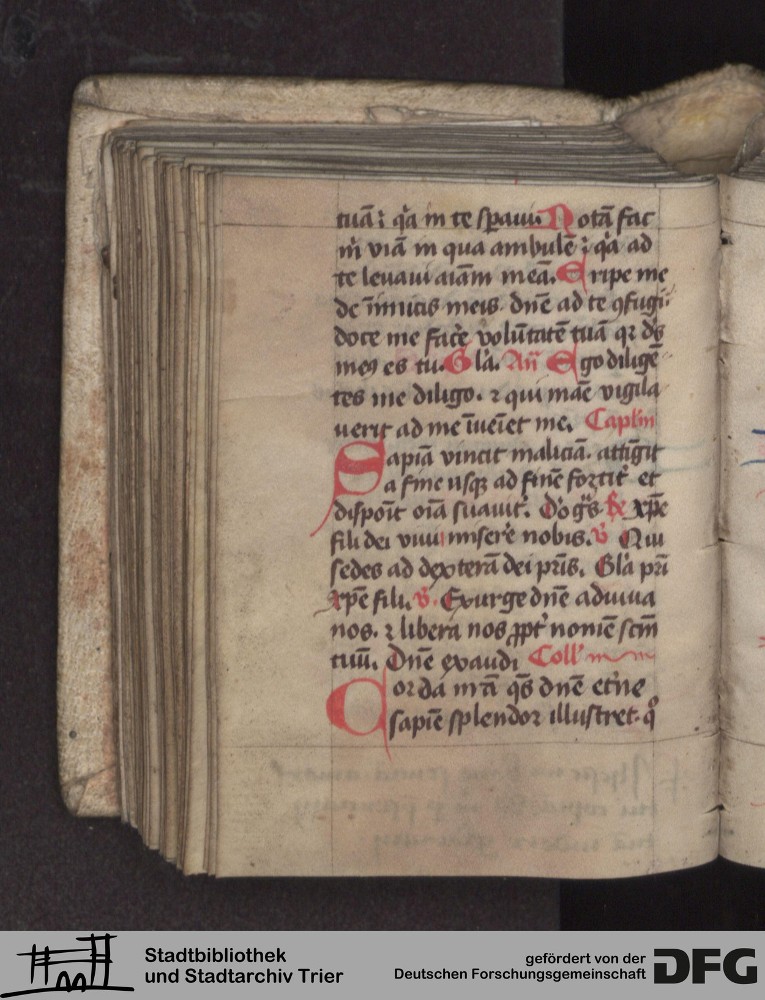 tuā : q̇a in te spaui Notā fac
m̄ viā in qua ambulē : q̇a ad
te leuaui aīam meā. Eripe me
de īimicis meis. dn̄e ad te ꝯfugi:
doce me facr̄e volūtatē tuā qr ds̄
meꝯ es tu. Gla. An̄ Ego diligē
tes me diligo. ⁊ qui māe vigila
uerīt ad me īueīet me. Caplm̄
Sapīa vincit maliciā. attīgit
a fine usqꝫ ad finē fortit̉ et
dispoīt oīa suauit̉. Do gs̄ ℟ xp̄e
fili dei viui miser̄e nobis. ℣ Qui
sedes ad dexterā dei pr̄is. Gla pr̄i
xp̄e fili. ℣. Exurge dn̄e adiuua
nos. ⁊ libera nos ꝓpt̉ nomē scm̄
tuū. Dn̄e exaudi Coll̉
Corda nr̄a qs̄ dn̄e et̉ne
sapīe splendor illustret. qͦ
Stadtbibliothek
und Stadtarchiv Trier
gefördert von der
Deutschen Forschungsgemeinschaft
DFG